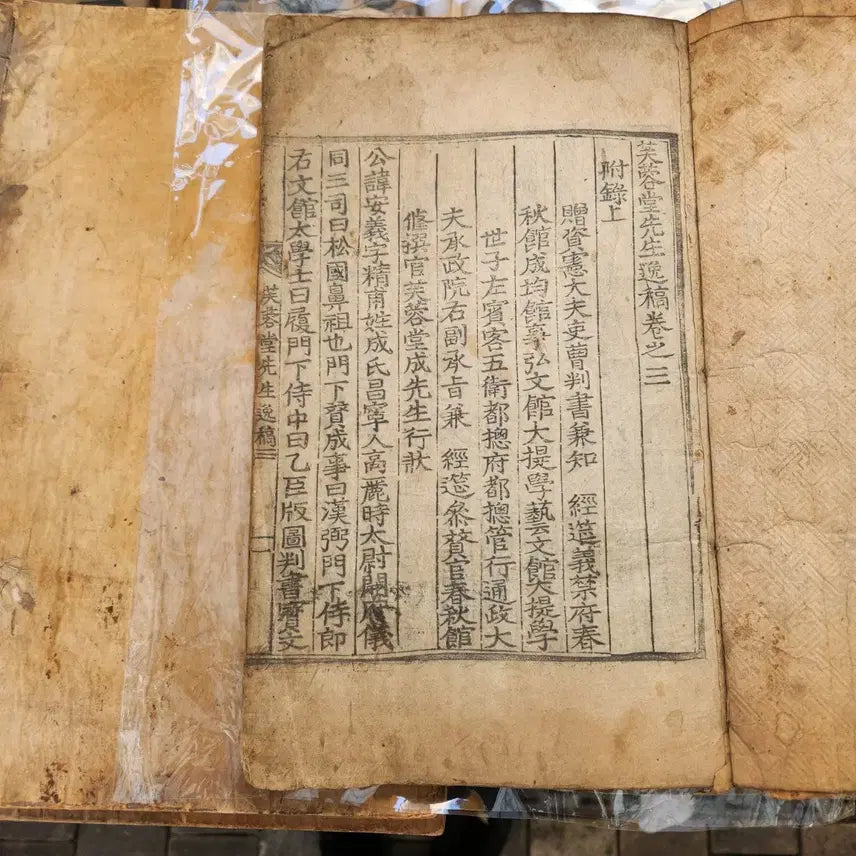 芙蓉堂先生逸稿卷之三
附錄上
贈資憲大夫吏曹判書兼知 經筵義禁府春
秋館成均館事弘文館大提學藝文館大提學
世子左賓客五衛都摠府都摠管行通政大
夫承政院右副承旨兼 經筵叅贊官春秋館
修撰官芙蓉堂成先生行狀
公諱安義字精甫姓成氏昌寧人高麗時太尉開府儀
同三司曰松國鼻祖也門下贊成事曰漢弼門下侍郎
右文館太學士曰履門下侍中曰乙臣版圖判書寶文
芙蓉堂先生逸稿 三 一